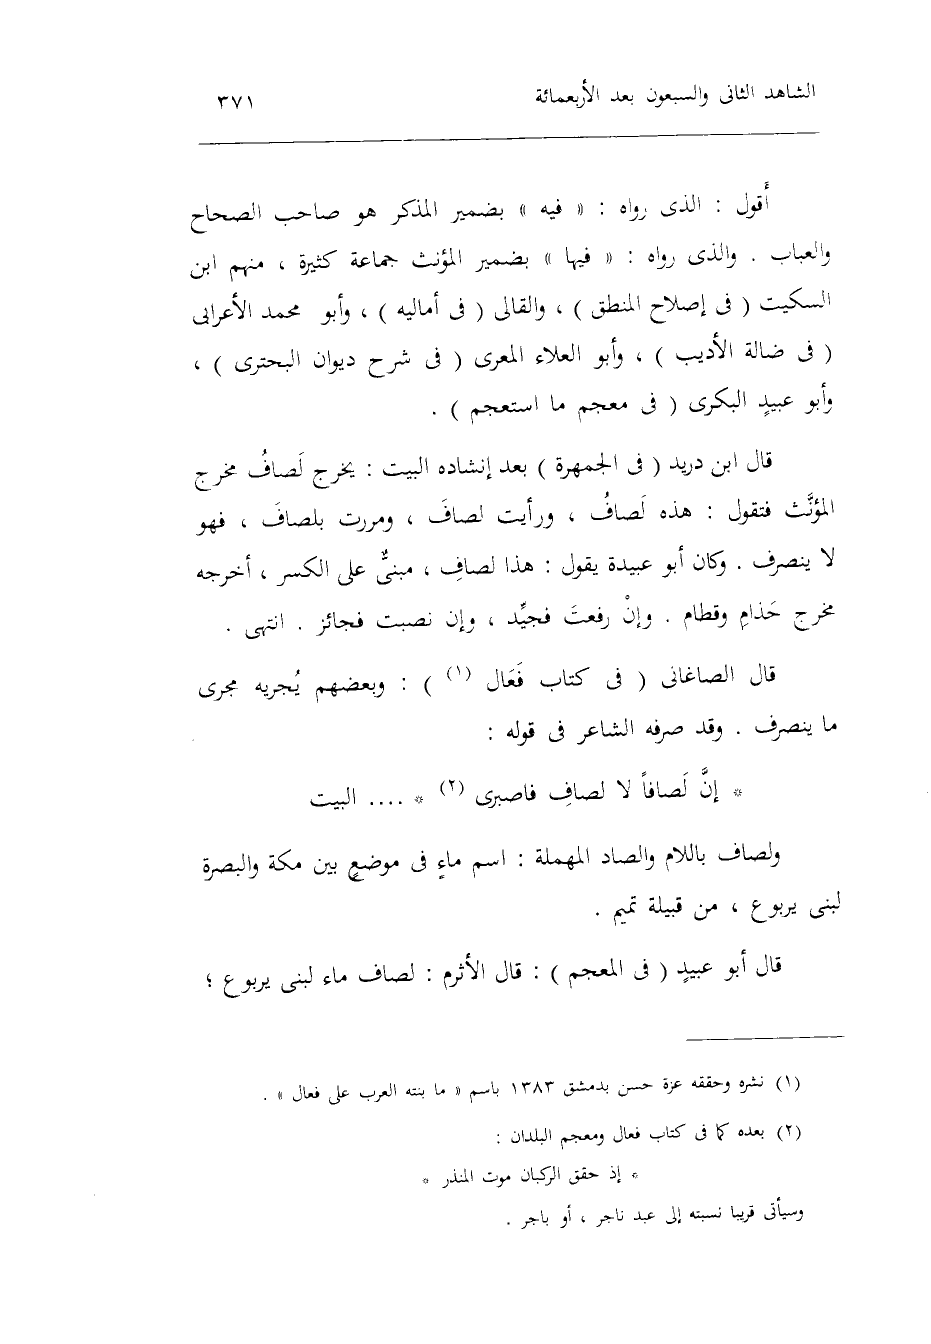 الشاهد الثانى والسبعون بعد الأربعمائة ٣٧١
أَقول : الذى رواه : « فيه » بضمير المذكر هو صاحب الصحاح
والعباب . والذى رواه : « فيها » بضمير المؤنث جماعة كثيرة ، منهم ابن
السكيت ( فى إصلاح المنطق ) ، والقالى ( فى أماليه ) ، وأبو محمد الأعرابى
( فى ضالة الأديب ) ، وأبو العلاء المعرى ( فى شرح ديوان البحترى ) ،
وأبو عبيدٍ البكرى ( فى معجم ما استعجم ) .
قال ابن دريد ( فى الجمهرة ) بعد إنشاده البيت : يخرج لَصافُ مخرج
المؤنَّث فتقول : هذه لَصافُ ، ورأيت لصافَ ، ومررت بلصافَ ، فهو
لا ينصرف . وكان أبو عبيدة يقول : هذا لصافِ ، مبنىٌّ على الكسر ، أخرجه
مخرج حَذامِ وقطام . وإنْ رفعتَ فجيِّد ، وإن نصبت فجائز . انتهى .
قال الصاغانى ( فى كتاب فَعَال (١) ) : وبعضهم يُجريه مجرى
ما ينصرف . وقد صرفه الشاعر فى قوله :
* إنَّ لَصافاً لا لصافِ فاصبرى (٢) * .... البيت
ولصاف باللام والصاد المهملة : اسم ماءٍ فى موضعٍ بين مكة والبصرة
لبنى يربوع ، من قبيلة تميم .
قال أبو عبيدٍ ( فى المعجم ) : قال الأثرم : لصاف ماء لبنى يربوع ؛
(١) نشره وحققه عزة حسن بدمشق ١٣٨٣ باسم « ما بنته العرب على فعال » .
(٢) بعده كما فى كتاب فعال ومعجم البلدان :
* إذ حقق الركبان موت المنذر *
وسيأتى قريبا نسبته إلى عبد ناجر ، أو باجر .